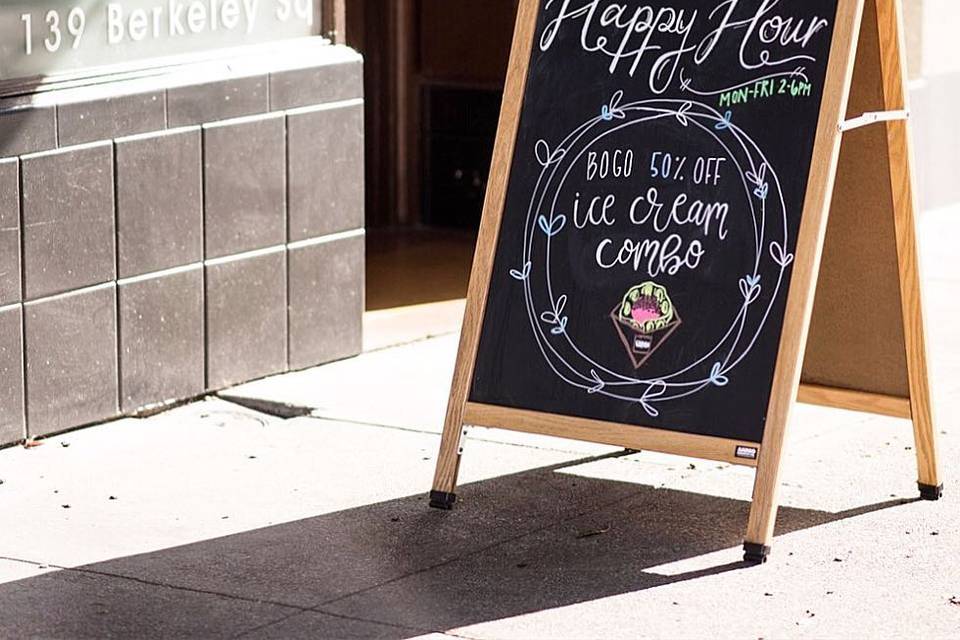 139 Berkeley Sq
Happy Hour
MON-FRI 2-6PM
BOGO 50% OFF
ice cream
combo